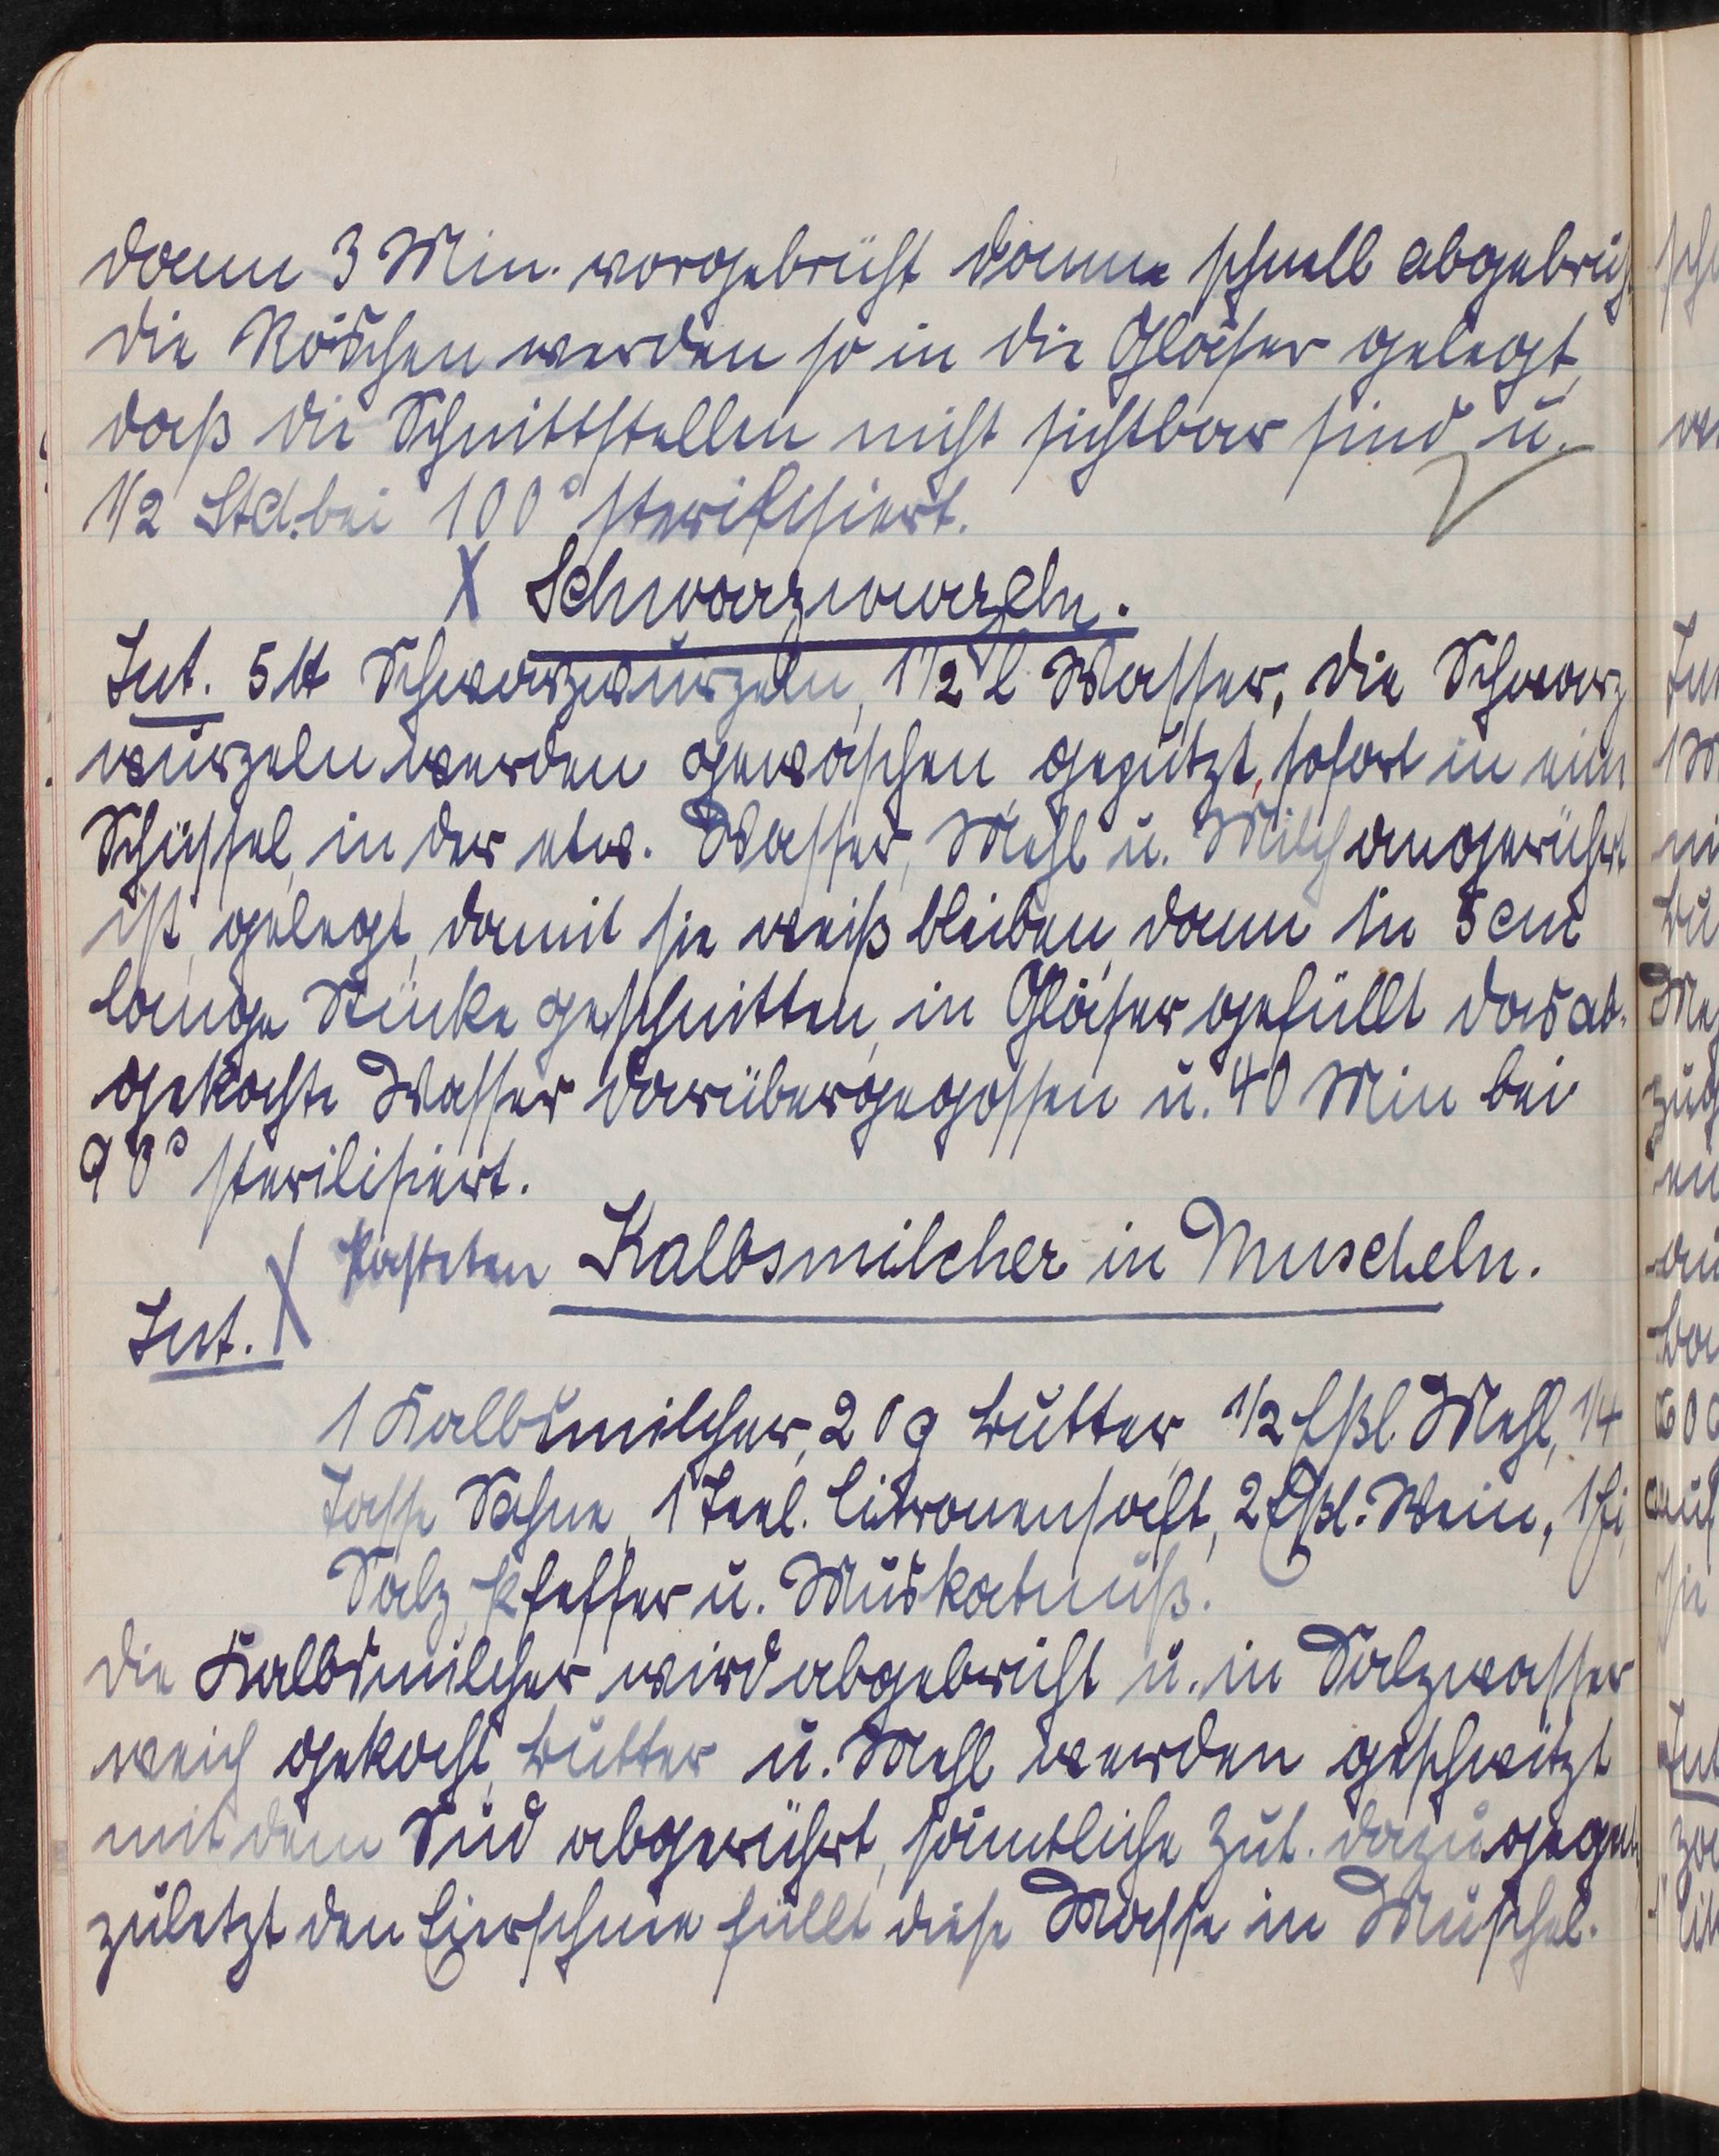 dann 3 Min. vorgebrüht dann schnell abgebrüh
die Röschen werden so in die Gläser gelegt,
daß die Schnittstellen nicht sichtbar sind u.
1/2 Std. bei 100° sterilisiert.
X Schwarzwurzeln.
Zut. 5 ℔ Schwarzwurzeln, 1 1/2 l Wasser, die Schwarz
wurzeln werden gewaschen geputzt, sofort in eine
Schüssel, in der etw. Wasser, Mehl u. Milch angerührt
ist, gelegt, damit sie weiß bleiben, dann in 5 cm
lange Stücke geschnitten, in Gläser gefüllt das ab-
gekochte Wasser darübergegossen u. 40 Min bei
90° sterilisiert.
X Pasteten Kalbsmilcher in Muscheln.
Zut.
1 Kalbsmilcher, 20 g Butter, 1/2 Eßl Mehl, 1/4
Tasse Sahne, 1 Teel. Citronensaft, 2 Eßl. Wein, 1 Ei,
Salz, Pfeffer u. Muskatnuß.
die Kalbsmilcher wird abgebrüht u. in Salzwasser
weich gekocht, Butter u. Mehl werden geschwitzt
mit dem Sud abgerührt, sämtliche Zut. dazugegeb.
zuletzt den Eierschnee füllt diese Masse in Muschel-